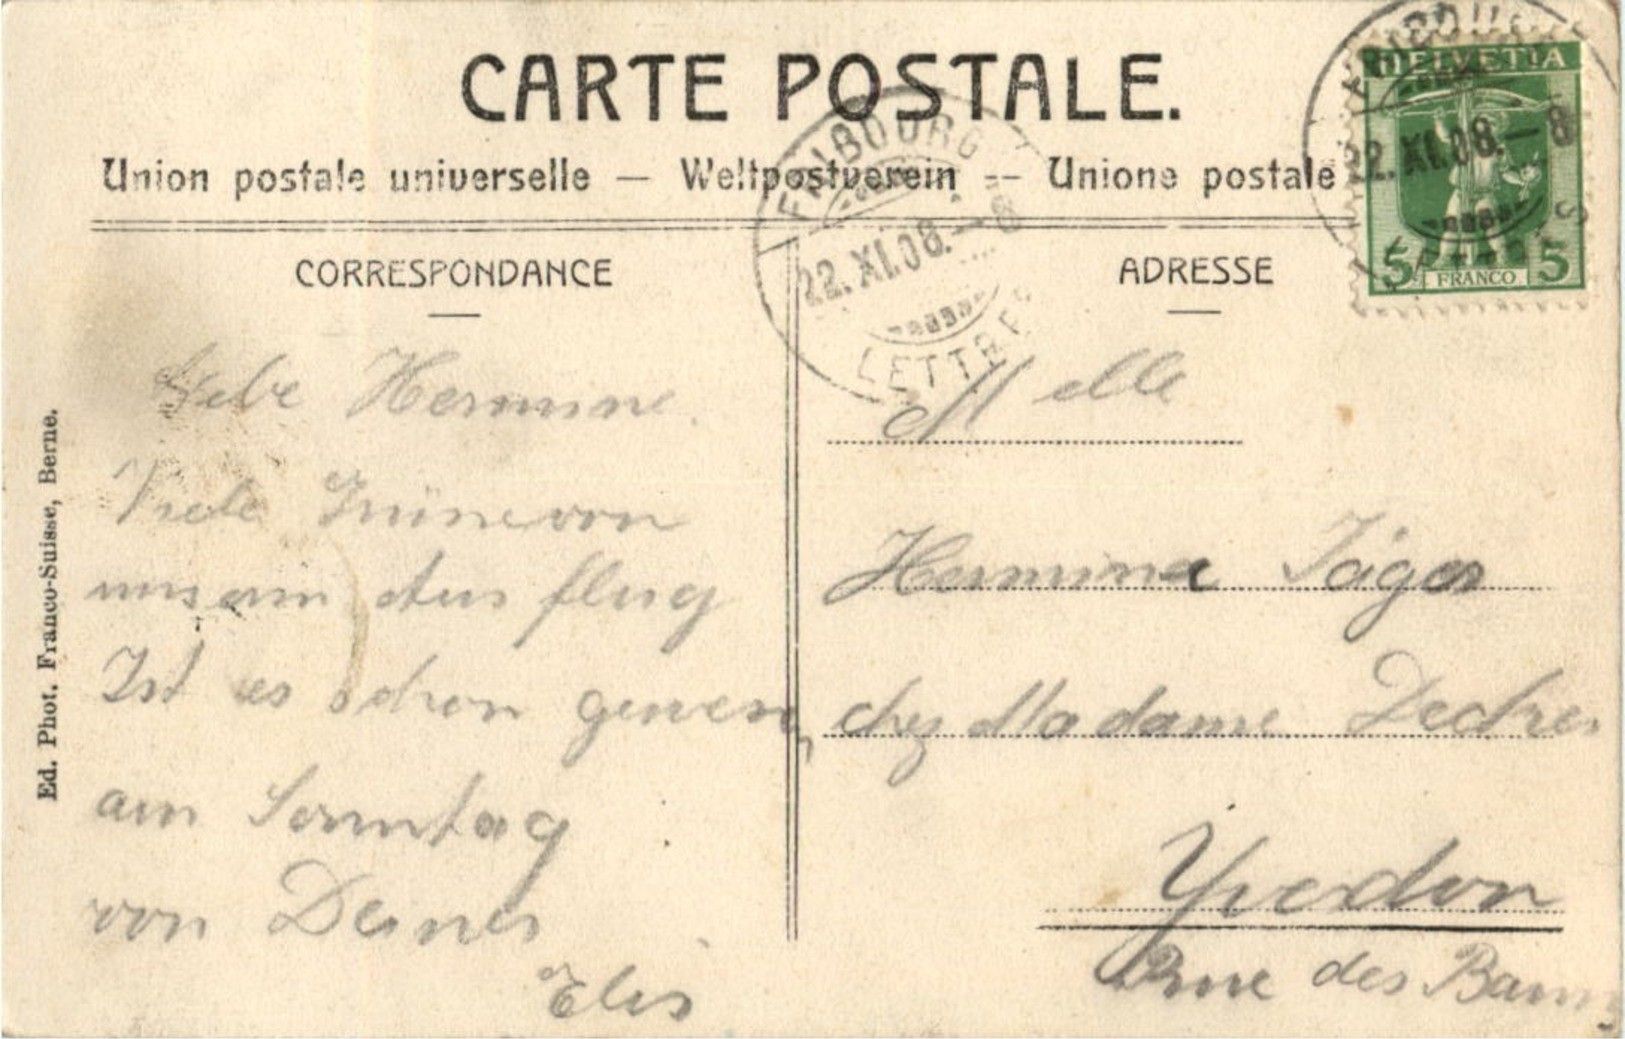 CARTE POSTALE.
Union postale universelle — Weltpostverein -- Unione postale
HELVETIA
5 FRANCO 5
FRIBOURG
22.XI.08.—8
LETTRES
FRIBOURG
22.XI.08.—8
CORRESPONDANCE
Liebe Hermine.
Viele Grüsse von
unserm Aus flug
Ist es schon gewesen
am Sonntag
von Deiner
Elis
ADRESSE
Melle
Hermina Jäger
chez Madame
Yverdon
Rue des
Ed. Phot. Franco-Suisse, Berne.